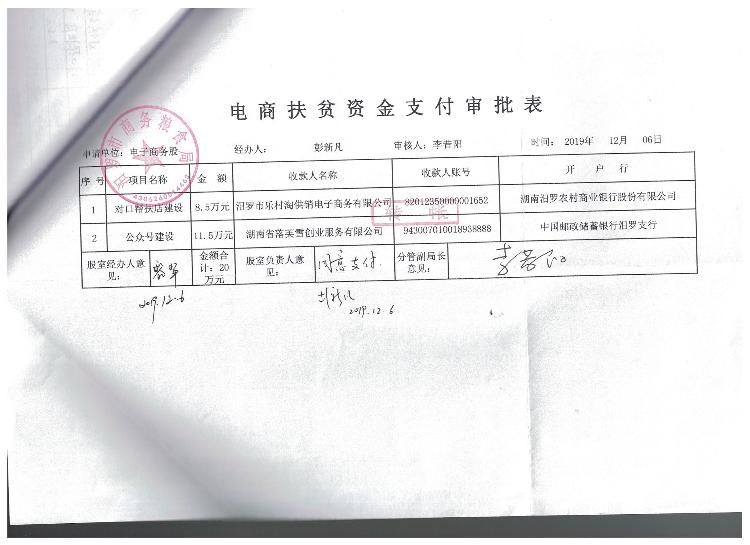 电商扶贫资金支付审批表
申请单位：电子商务股 经办人： 彭新凡 审核人：李昔阳 时间： 2019年 12月 06日
序号 项目名称 金 额 收款人名称 收款人账号 开 户 行
1 对口帮扶店建设 8.5万元 汨罗市乐村淘供销电子商务有限公司 82012350000001652 湖南汨罗农村商业银行股份有限公司
2 公众号建设 11.5万元 湖南省落芙雪创业服务有限公司 943007010018938888 中国邮政储蓄银行汨罗支行
股室经办人意见： 金额合计：20万元 股室负责人意见： 同意支付. 分管副局长意见：
2019.12.6
2019.12.6
汨罗市商务粮食局
转 账